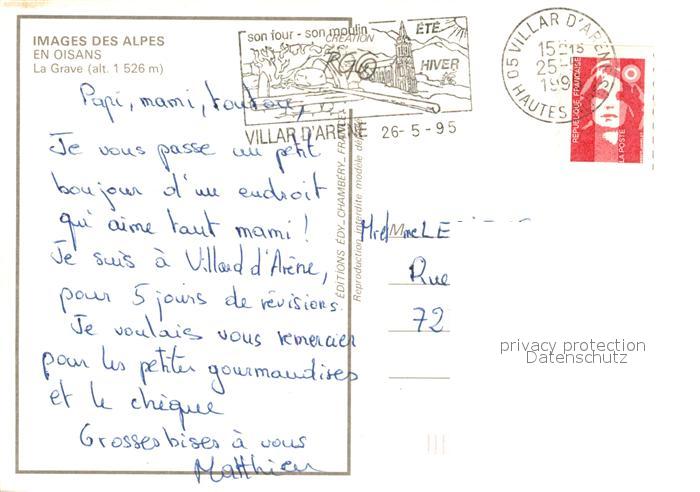 IMAGES DES ALPES
EN OISANS
La Grave (alt. 1 526 m)
Papi, mami, tontou,
Je vous passe un petit
boujour d'un endroit
qu'aime tant mami !
Je suis à Villard d'Arène,
pour 5 jours de révisions.
Je voulais vous remercier
pour les petites gourmandises
et le chèque
Grosses bises à vous
Matthieu
son four - son moulin
CRÉATION
ÉTÉ
HIVER
VILLAR D'ARENE 26-5-95
05 VILLAR D'ARÈNE
15 H 15
25
199
HAUTES
REPUBLIQUE FRANÇAISE
LA POSTE
ÉDITIONS EDY_CHAMBÉRY_FRANCE
Reproduction interdite modèle déposé
Mr et Mme LE
Rue
72
privacy protection
Datenschutz